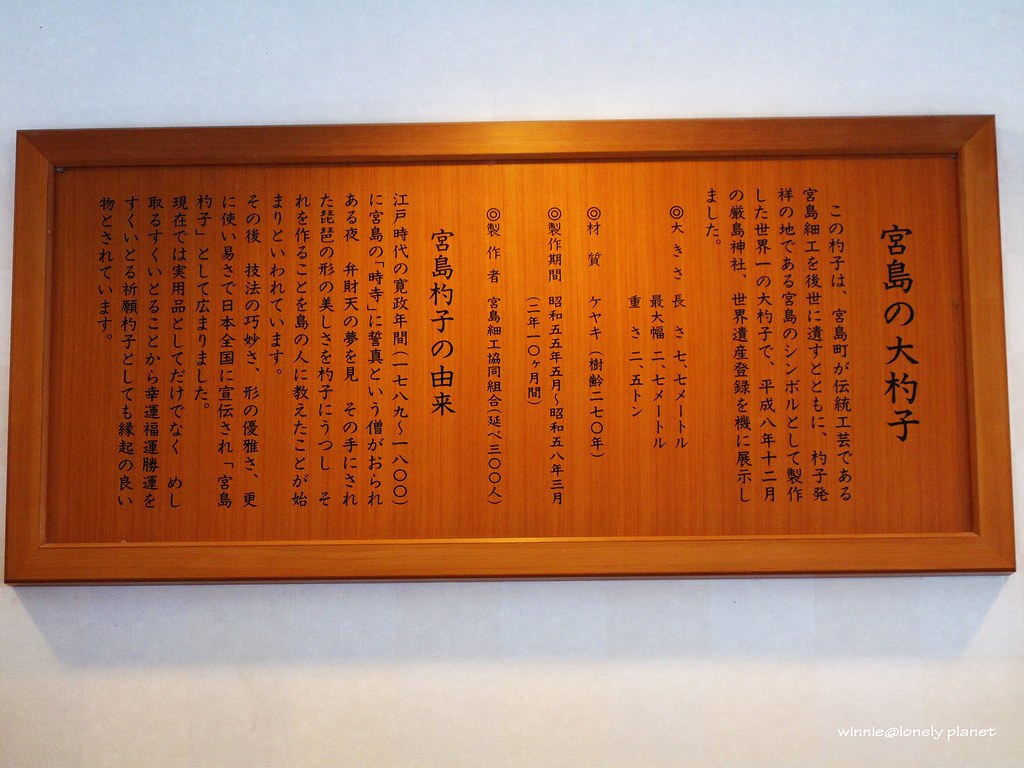 宮島の大杓子
この杓子は、宮島町が伝統工芸である
宮島細工を後世に遺すとともに、杓子発
祥の地である宮島のシンボルとして製作
した世界一の大杓子で、平成八年十二月
の厳島神社、世界遺産登録を機に展示し
ました。
◎大きさ 長さ 七、七メートル
最大幅 二、七メートル
重さ 二、五トン
◎材質 ケヤキ（樹齢二七〇年）
◎製作期間 昭和五五年五月～昭和五八年三月
（二年一〇ヶ月間）
◎製作者 宮島細工協同組合（延べ三〇〇人）
宮島杓子の由来
江戸時代の寛政年間（一七八九～一八〇〇）
に宮島の「時寺」に誓真という僧がおられ
ある夜 弁財天の夢を見 その手にされ
た琵琶の形の美しさを杓子にうつし そ
れを作ることを島の人に教えたことが始
まりといわれています。
その後 技法の巧妙さ、形の優雅さ、更
に使い易さで日本全国に宣伝され「宮島
杓子」として広まりました。
現在では実用品としてだけでなく めし
取るすくいとることから幸運福運勝運を
すくいとる祈願杓子としても縁起の良い
物とされています。
winnie@lonely planet